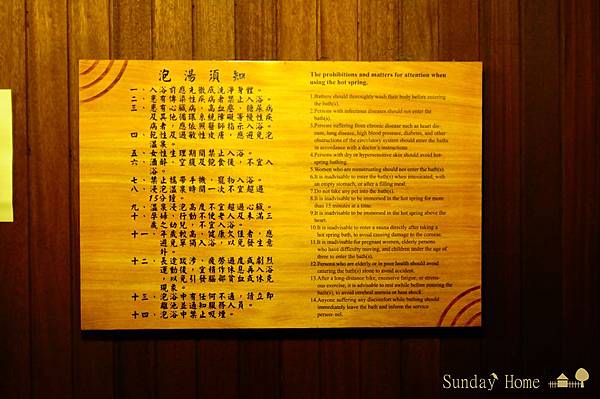 泡湯須知
一、入浴前應先徹底洗淨身體。
二、患有傳染性疾病者禁止入浴。
三、患有心臟病，高血壓，糖尿病
及其他循環系統障礙等慢性疾
病者，應依照醫師指示入浴。
四、乾性及過敏性皮膚，應避免泡
溫泉。
五、女性生理期間禁止入浴。
六、酒醉，空腹及飽食後，不宜入
浴。
七、禁止攜帶手機，寵物入浴。
八、浸泡溫泉時間一次不宜超過
15分鐘。
九、溫泉浸泡高度不宜超過心臟。
十、孕婦，行動不便老人及未滿三
歲之幼兒，不宜入浴。
十一、年歲較高，健康欠佳者，應
避免單獨入浴，以免發生意
外。
十二、長途跋涉，疲勞過度或劇烈
運動後，宜稍作休息再入浴
，以免引發腦部貧血或休克
現象。
十三、泡浴中有任何不適，請立即
離池並通知服務人員。
十四、泡浴中禁止吸煙。
The prohibitions and matters for attention when
using the hot spring.
1.Bathers should thoroughly wash their body before entering
the bath(s).
2.Persons with infectious diseases should not enter the
bath(s).
3.Persons suffering from chronic disease such as heart dis-
ease, lung disease, high blood pressure, diabetes, and other
obstructions of the circulatory system should enter the baths
in accordance with a doctor's instructions.
4.Persons with dry or hypersensitive skin should avoid hot-
spring bathing.
5.Women who are menstruating should not enter the bath(s).
6.It is inadvisable to enter the bath(s) when intoxicated, with
an empty stomach, or after a filling meal.
7.Do not take any pet into the bath(s).
8.It is inadvisable to be immersed in the hot spring for more
than 15 minutes at a time.
9.It is inadvisable to be immersed in the hot spring above the
heart.
10.It is inadvisable to enter a sauna directly after taking a
hot spring bath, to avoid causing damage to the corneae.
11.It is inadvisable for pregnant women, elderly persons
who have difficulty moving, and children under the age of
three to enter the bath(s).
12.Persons who are elderly or in poor health should avoid
entering the bath(s) alone to avoid accident.
13.After a long-distance hike, excessive fatigue, or strenu-
ous exercise, it is advisable to rest awhile before entering the
bath(s), to avoid cerebral anemia or heat shock.
14.Anyone suffering any discomfort while bathing should
immediately leave the bath and inform the service
person-nel.
Sunday Home